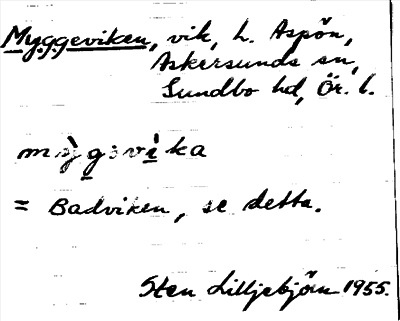 Myggeviken, vik, h. Aspön,
Askersunds sn,
Sundbo hd, Ör. l.
mỳgəvìka
= Badviken, se detta.
Sten Lilljebjörn 1955.